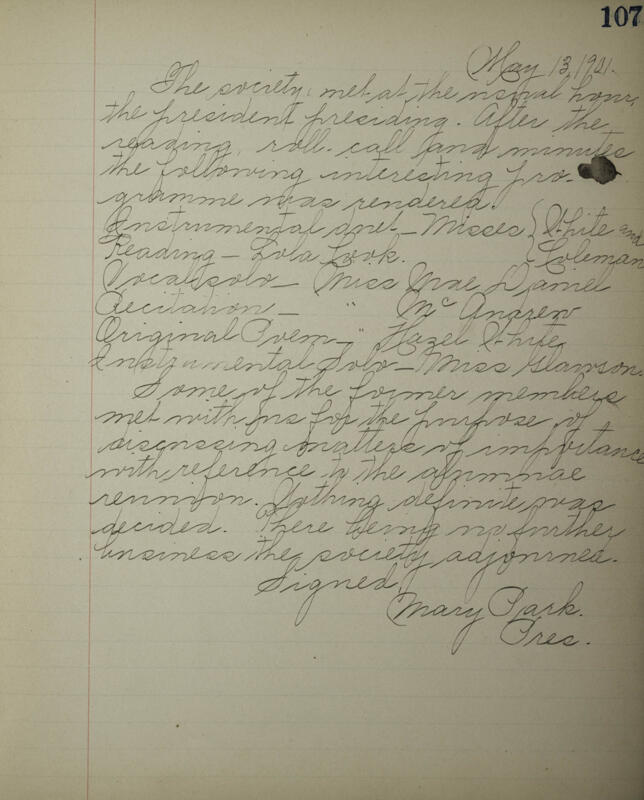 107
May 13, 1901.
The society met at the usual hour,
the president presiding. After the
reading, roll-call and minutes
the following interesting pro-
gramme was rendered.
Instrumental duet - Misses { White and
Reading - Lola Cook. { Coleman
Vocal solo - Miss Mae Daniel
Recitation - " Mc Andrew
Original Poem - " Hazel White
Instrumental Solo - Miss Glawson.
Some of the former members
met with us for the purpose of
discussing matters of importance
with reference to the alumnae
reunion. Nothing definite was
decided. There being no further
business the society adjourned.
Signed,
Mary Park.
Pres.